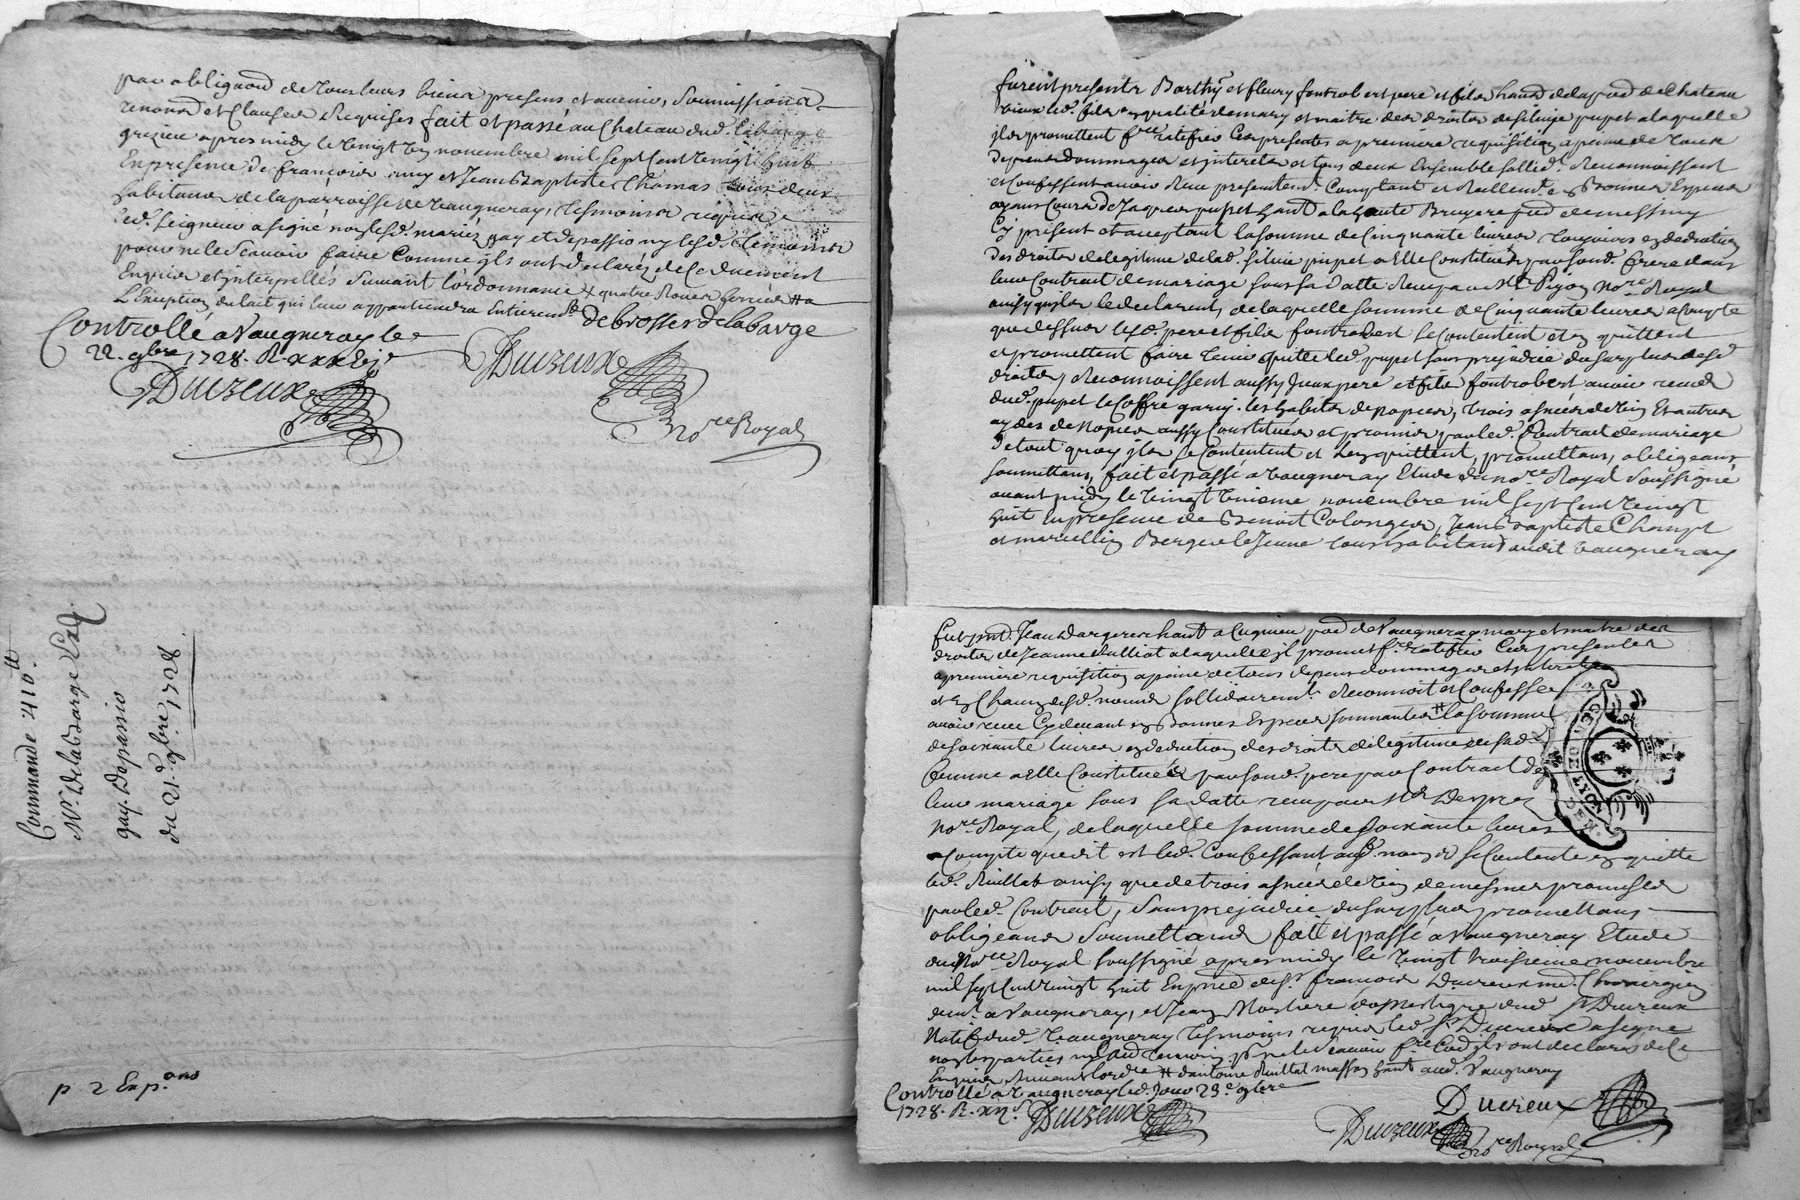 par obligaõn de tous leurs biens presens et avenir, soumissions
renonõn et Clauses Requises fait et passé au Chateau dud. labarge
apres midy le vingt un novembre mil sept Cent vingt huit
En presence de francois et Jean Baptiste Thomas tous deux
habitans de la parroisse de vaugneray, tesmoins requis
led. seigneur a signé non lesd. mariez gay et depassio ny lesd. temoins
pour ne le scavoir faire Comme ils ont declarez de Ce duement
Enquis et interpellés suivant l'ordonnance x quatre Roues ferrées #a
L'Exception du lait qui leur appartiendra Entierem.t debrosses de la barge
Controllé a Vaugneray le
22. 9bre. 1728. R.
Ducreux
Ducreux
no.re Royal
Commande 210.tt
Mr. De la Barge
gay. Depassio
du 21.e 9bre. 1728
p. 2 Exp.ons
furent presents Barth.y et fleury fontrobert pere et fils de la par̃ de Chateau
vieux led. fils en qualité de mary et maitre des droits de silvie pupet a laquelle
ils promettent f.re ratifier Ces presentes a premiere requisition a peine de tous
depens dommages et interets et tous deux Ensemble sollid.t Reconnoissent
et Confessent avoir Receu presentem.t Comptant et Reellem.t En Bonnes Especes
ayans Cours de Jaques pupet hant a la haute Bruyere par̃ de messimy
Cy present et acceptant la somme de Cinquante livres toujours en deduction
des droits de legitime de lad. silvie pupet a Elle Constitués par sond. frere dans
leur Contract de mariage sous sa datte Receu par Me Pigoy No.re Royal
ainsy quils le declarent, de laquelle somme de Cinquante livres a Compte
que dessus lesd. pere et fils fontrobert se Contentent et en quittent
et promettent faire tenir quitte led. pupet sans prejudice du surplus desd.
droits, Reconnoissent aussy Jceux pere et fils fontrobert avoir receu
dud. pupet le Coffre garny. les habits de nopces, trois asnées de vin Et autres
aydes de nopces aussy Constitués et promis par led. Contract de mariage
de tout quoy ils se Contentent et Len quittent, promettans, obligeans
soumettans, fait et passé a vaugneray Etude du no.re Royal soussigné
avant midy le vingt troisieme novembre mil sept Cent vingt
huit En presence de Benoit Colonges, Jean Baptiste
et marcellin Berger le Jeune tous habitans audit vaugneray
fut pnt. Jean Dargere hant a par̃ de Vaugneray mary et maitre des
droits de Jeanne Rulliat a laquelle il promet f.re ratifier Ces presentes
a premiere requisition a peine de tous depens dommages et interets
et En Chacun desd. noms sollidairem.t Reconnoit et Confesse
avoir receu Cy devant en Bonnes Especes sonnantes # la somme
de soixante livres en deduction des droits de legitime de sad.
femme a Elle Constitués par sond. pere par Contract de
leur mariage sous sa datte receu par Me
No.re Royal, de laquelle somme de soixante livres
a Compte que dit est led. Confessant aud. nom se Contente en quitte
led. Rulliat ainsy que de trois asnées de vin de mesmes promises
par led. Contract, sans prejudice du surplus promettans
obligeans soumettans fait et passé a Vaugneray Etude
du No.re Royal soussigné apres midy le vingt troisieme novembre
mil sept Cent vingt huit En pnce de s.r francois Ducreux me. Chirurgien
dem.t a Vaugneray, et Jean domestique dud. s.r Ducreux
Natif dud. vaugneray tesmoins requis led. s.r Ducreux a signé
non les parties ny l'autre temoin p.r ne le scavoir f.re Co.e ils ont declarés de Ce
Enquis suivant lord.ce # dantoine Rulliat masson hant aud. Vaugneray
Controllé a Vaugneray led. Jour 23.e 9bre
1728. R. xij s. Ducreux
Ducreux
Ducreux
no.re Royal
GEN.
LYON